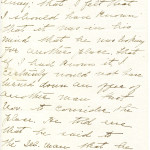 away; that I felt that
I should have known
that it was in his
mind that he was looking
for another place, that
if I had known it I
certainly would not have
turned down an offer of
another man but
to consider the
place. He told me
that he said it
the man that he